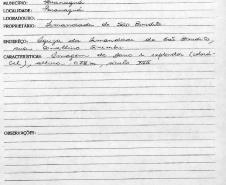 MUNICÍPIO: Paranaguá
LOCALIDADE: Paranaguá
LOGRADOURO:
PROPRIETÁRIO: Irmandade de São Benedito
ENDEREÇO: Igreja da Irmandade de São Benedito,
rua Conselheiro Sinimbú
CARACTERÍSTICAS: Imagem de gesso e resplendor
), altura 0,78 m, século XIX
OBSERVAÇÕES: